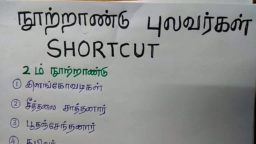 நூற்றாண்டு புலவர்கள்
SHORTCUT
2 ம் நூற்றாண்டு
① இளங்கோவடிகள்
② சீத்தலை சாத்தனார்
③ பூதஞ்சேந்தனார்
④ கபிலர்